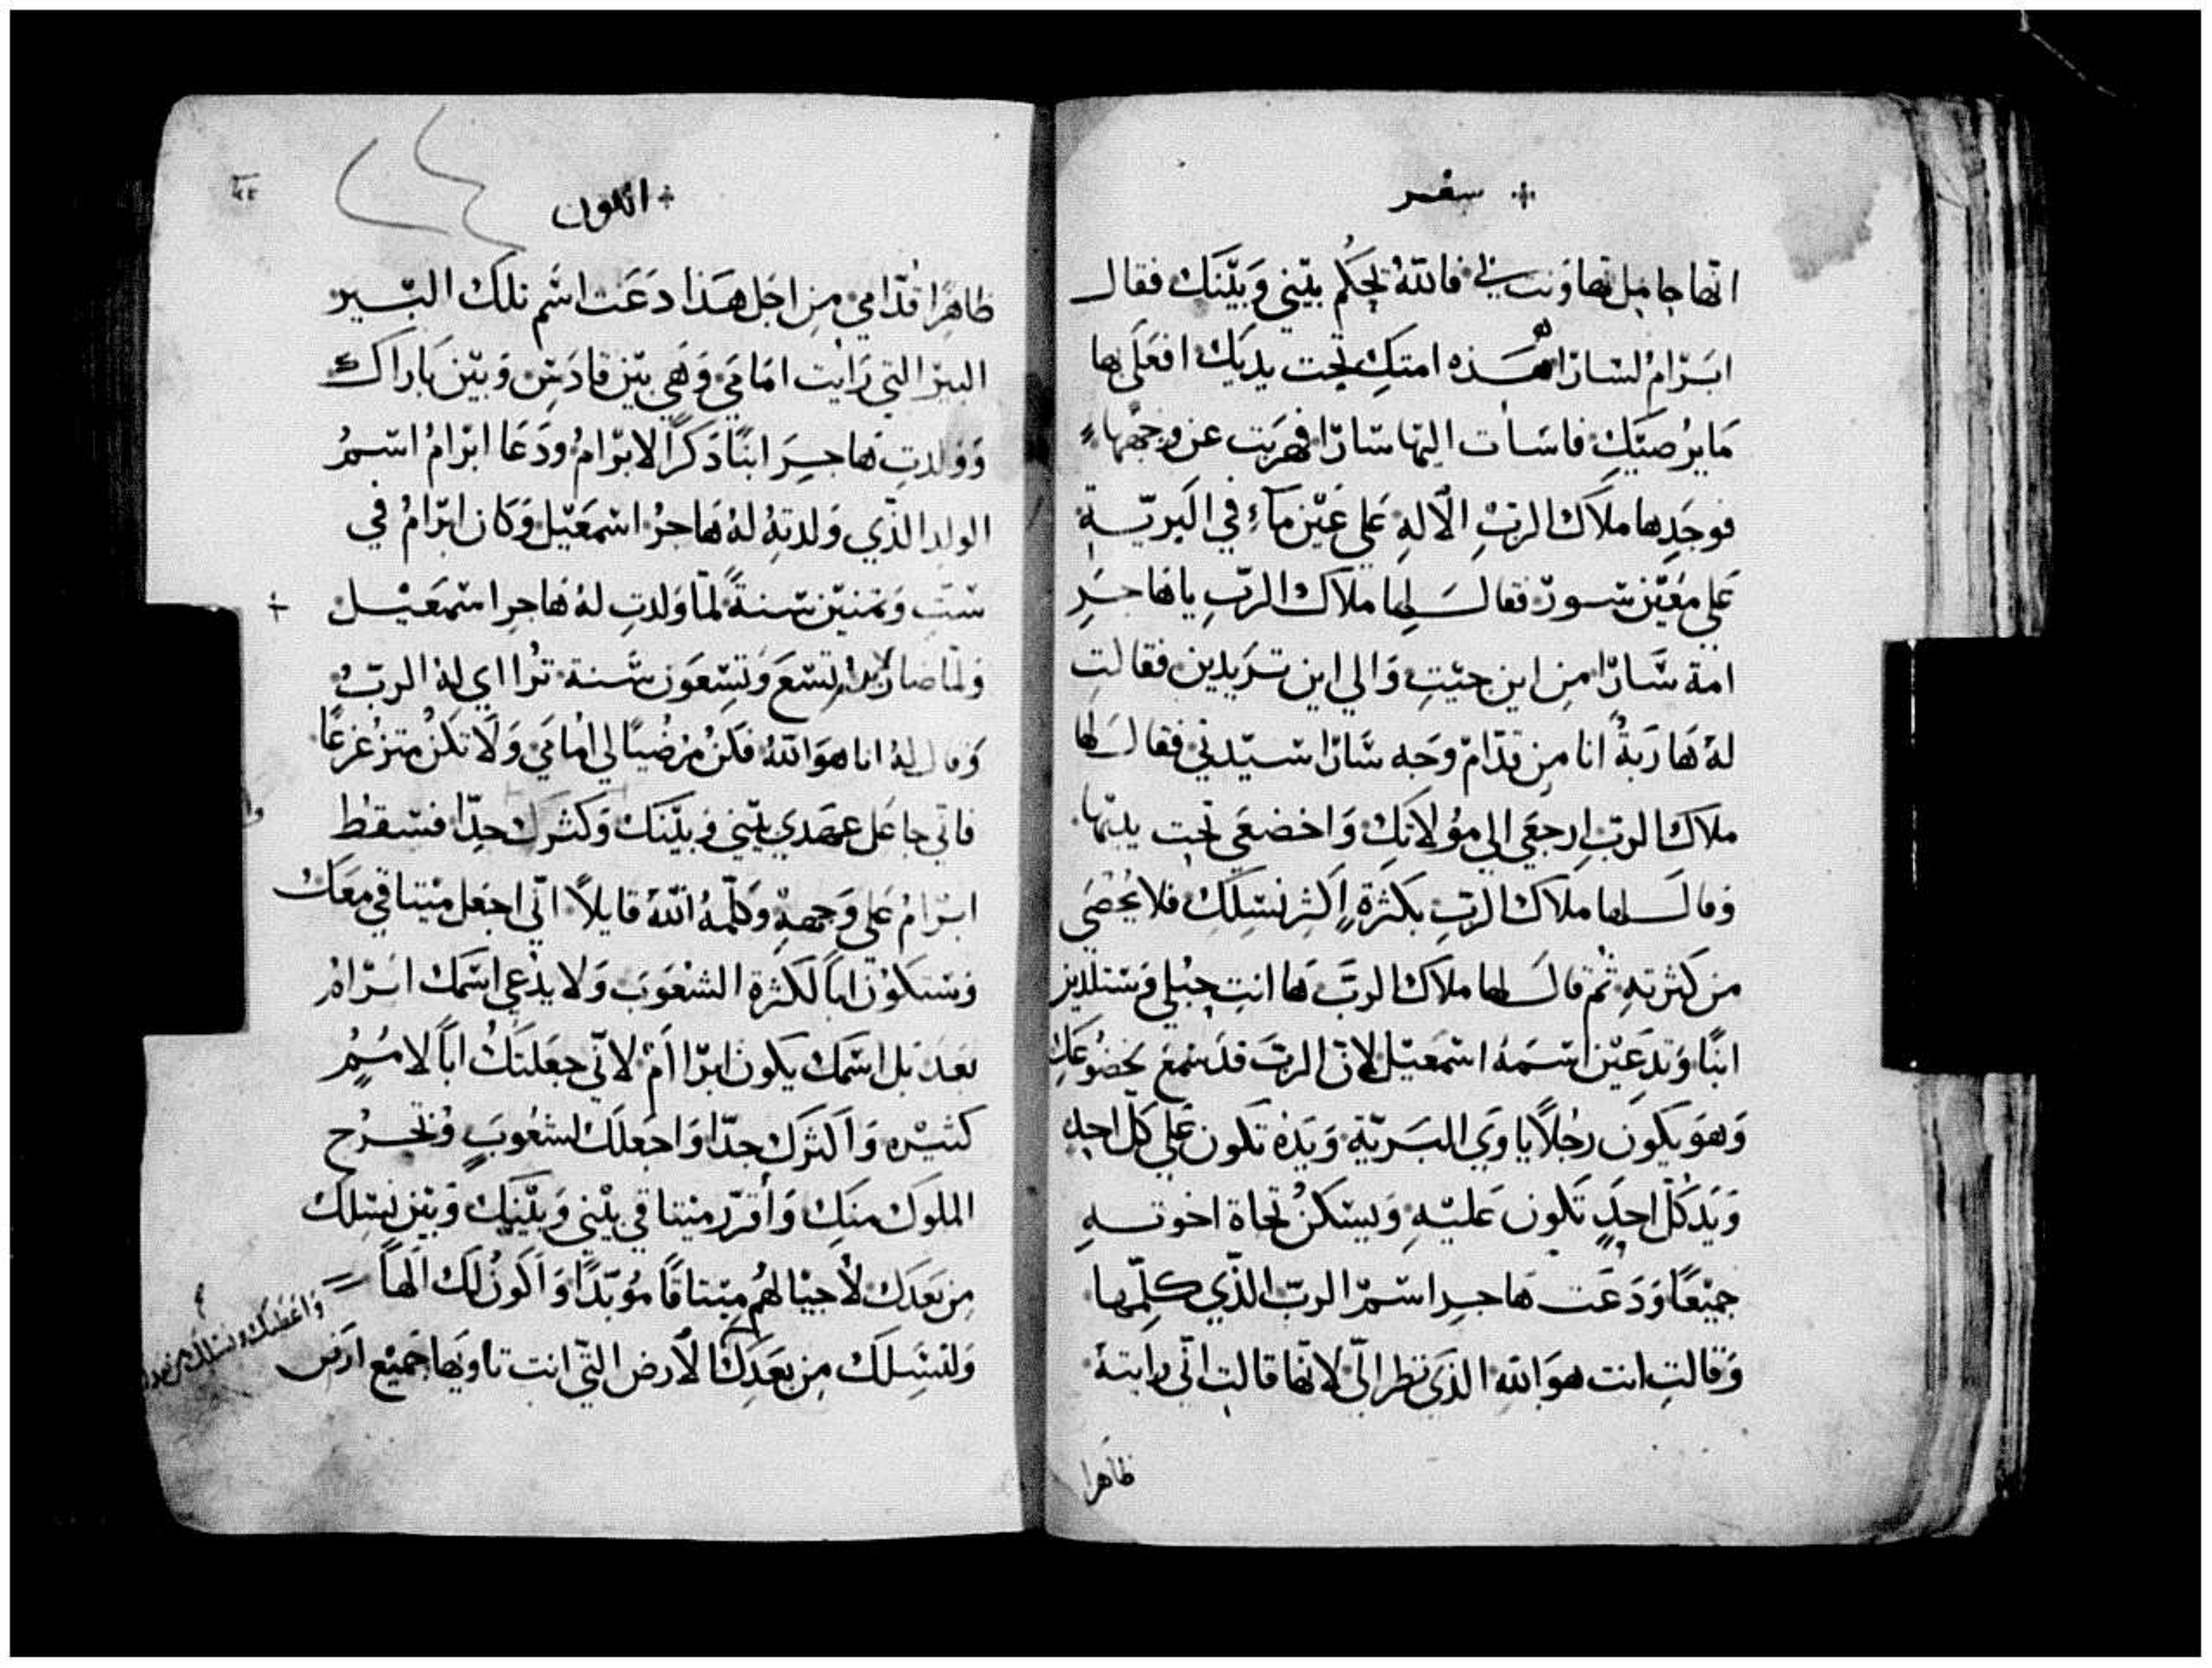 سفر
انها حامل تهاونت بي فالله يحكم بيني وبينك فقال
ابرام لسارا هذه امتك تحت يديك افعلي بها
ما يرضيك فاسات اليها سارا فهربت عن وجهها
فوجدها ملاك الرب الاله على عين مآء في البرية
على معين سور فقال لها ملاك الرب يا هاجر
امة سارا من اين جيت والي اين تريدين فقالت
له هاربة انا من قدام وجه سارا سيدتي فقال لها
ملاك الرب ارجعي الي مولاتك واخضعي تحت يديها
وقال لها ملاك الرب بكثرة اكثر نسلك فلا يحصى
من كثرته ثم قال لها ملاك الرب ها انت حبلي وستلدين
ابنا وتدعين اسمه اسمعيل لان الرب قد سمع بخضوعك
وهو يكون رجلا ياوي البرية ويده تكون علي كل احد
ويد كل احد تكون عليه ويسكن تجاة اخوته
جميعا ودعت هاجر اسم الرب الذي كلمها
وقالت انت هو الله الذي نظر الي لانها قالت اني رايته
ظاهرا
التكوين
ظاهرا قدامي من اجل هذا دعت اسم تلك البير
البير التي رايت امامي وهي بين قادس وبين باراك
وولدت هاجر ابنا ذكرا لابرام ودعا ابرام اسم
الولد الذي ولدته له هاجر اسمعيل وكان ابرام في
ست وثمنين سنة لما ولدت له هاجر اسمعيل
ولما صار ابرام تسع وتسعون سنة تراا اي له الرب
وقال له انا هو الله فكن مرضيا لي امامي ولا تكن متزعزعا
فاني جاعل عهدي بيني وبينك وكثرك جدا فسقط
ابرام على وجهه وكلمه الله قايلا اني اجعل ميتاقي معك
وستكون ابا لكثرة الشعوب ولا يدعي اسمك ابرام
بعد بل اسمك يكون ابراام لاني جعلتك ابا لامم
كثيره واكثرك جدا واجعلك لشعوب وتخرج
الملوك منك واقرر ميتاقي بيني وبينك وبين نسلك
من بعدك لاجيالهم ميتاقا موبدا واكون لك الها
واعطيك ونسلك من بعدك
ولنسلك من بعدك الارض التي انت تاويها جميع ارض